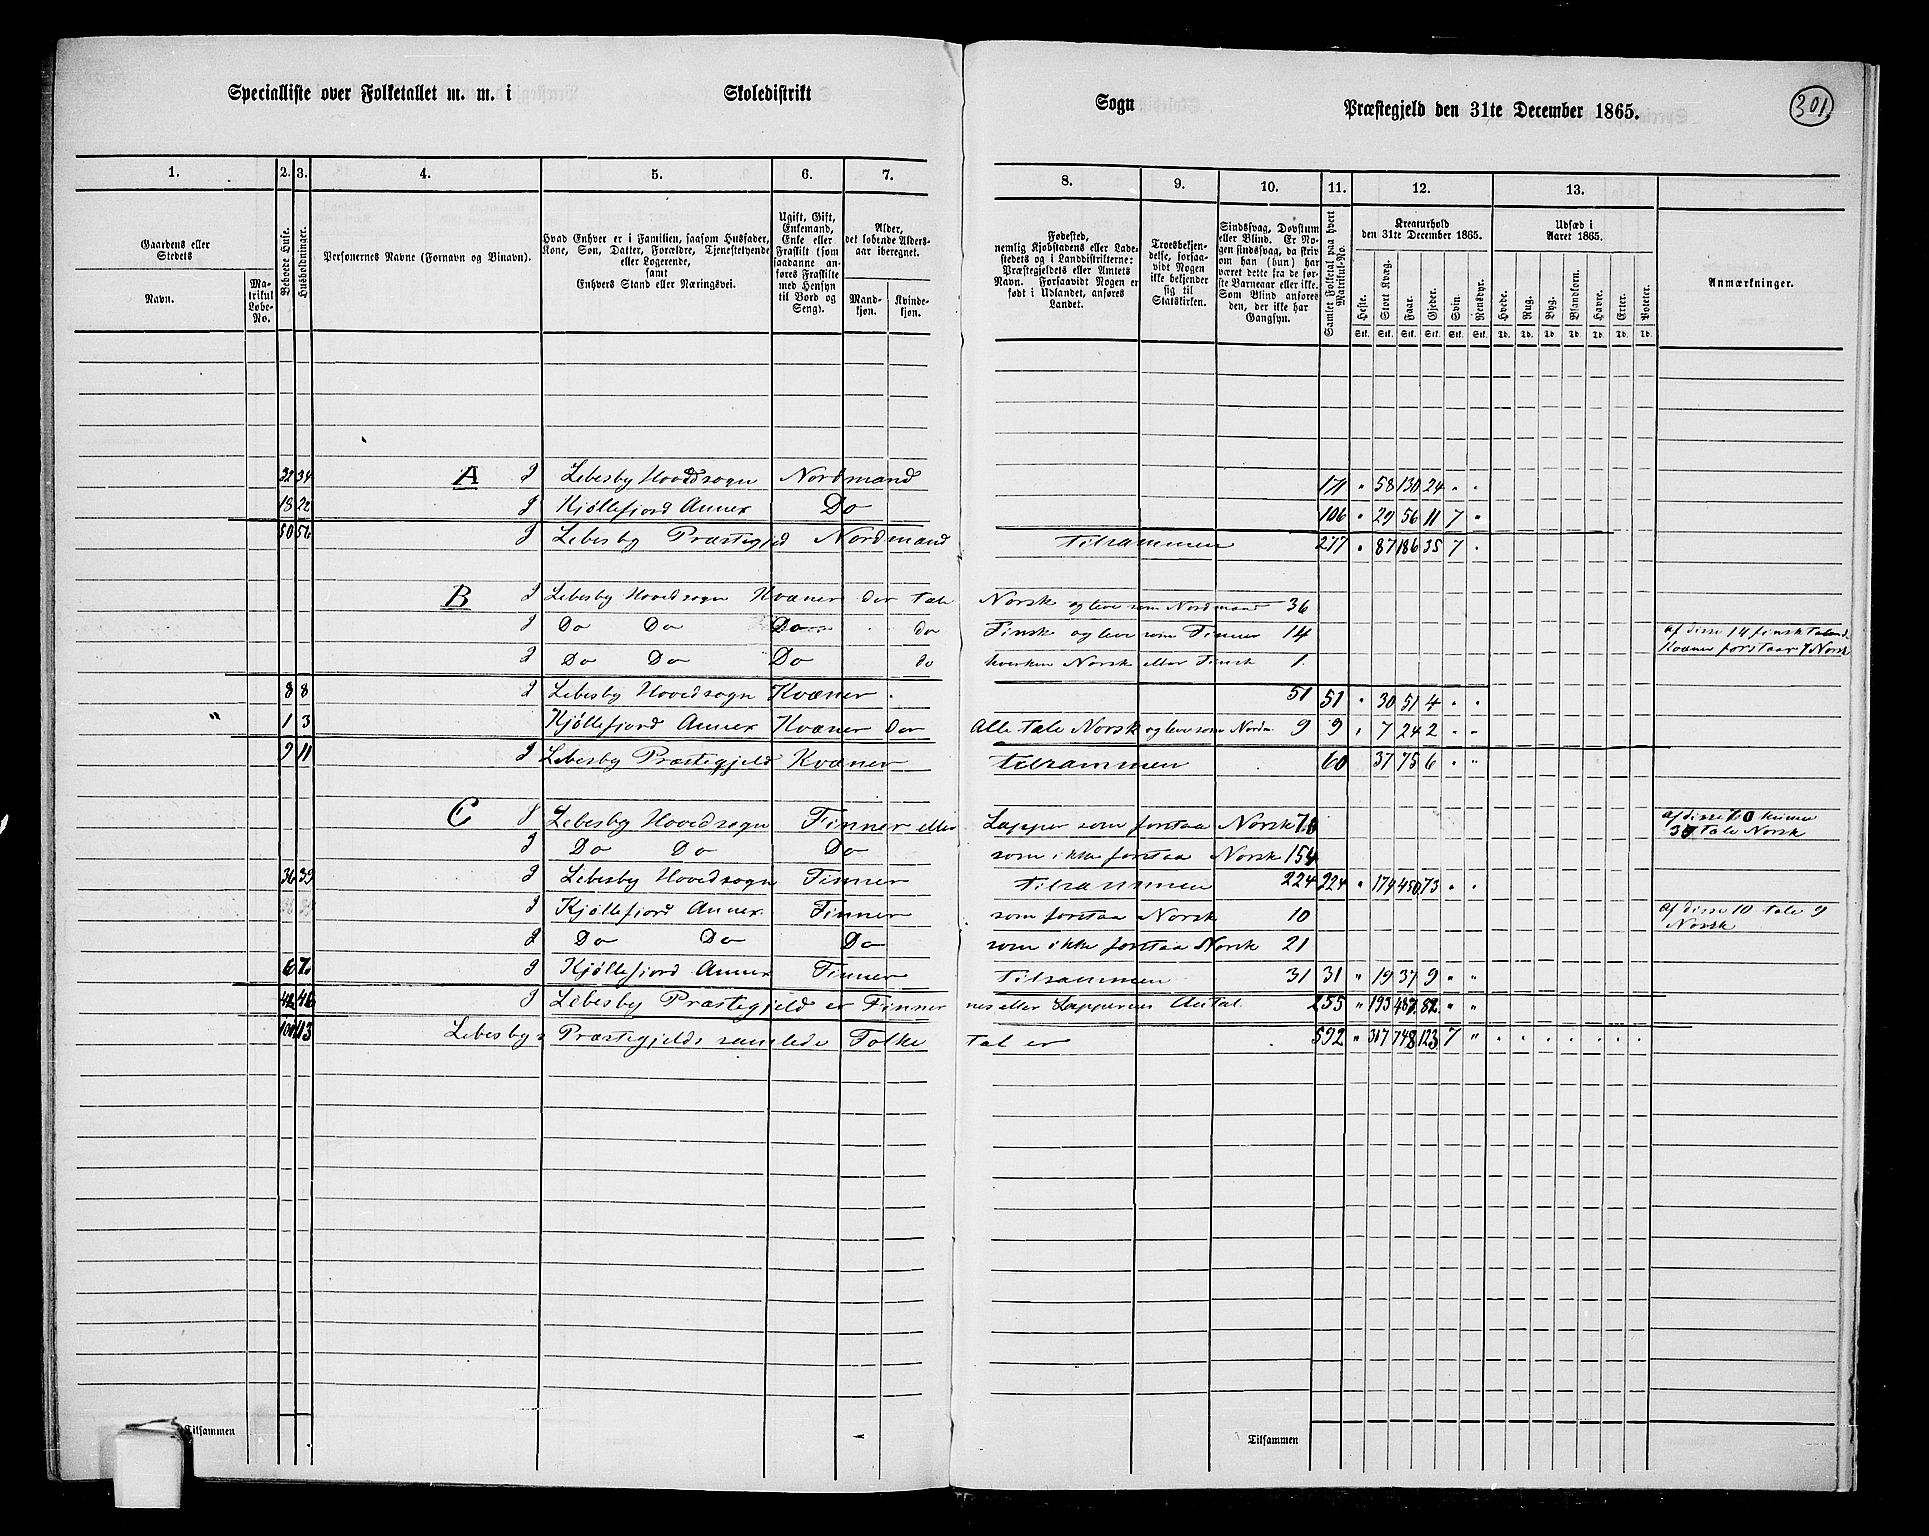 Specialliste over Folketallet m. m. i Skoledistrikt Sogn Præstegjeld den 31te December 1865. 301.
1. 2. 3. 4. 5. 6. 7. 8. 9. 10. 11. 12. 13.
Gaardens eller Stedets
Navn.
Matrikul Løbe-No.
Beboede Huse.
Husholdninger.
Personernes Navne (Fornavn og Binavn).
Hvad Enhver er i Familien, saasom Husfader, Kone, Søn, Datter, Forældre, Tjenestetyende eller Logerende, samt Enhvers Stand eller Næringsvei.
Ugift, Gift, Enkemand, Enke eller Fraskilt (som saadanne anføres Fraskilte med Hensyn til Bord og Seng).
Alder, det løbende Aldersaar iberegnet.
Mandkjøn.
Kvindekjøn.
Fødested, nemlig Kjøbstadens eller Ladestedets og i Landdistrikterne: Præstegjeldets eller Amtets Navn. Forsaavidt Nogen er født i Udlandet, anføres Landet.
Troesbekjendelse, forsaavidt Nogen ikke bekjender sig til Statskirken.
Sindssvag, Døvstum eller Blind. Er Nogen sindssvag, da skriv om han (hun) har været dette fra de første Barneaar eller ikke. Som Blind anføres den, der ikke har Gangsyn.
Samlet Folketal paa hvert Matrikul-No.
Kreaturhold den 31te December 1865.
Heste. Stort Kvæg. Faar. Gjeder. Svin. Rensdyr.
Stk. Stk. Stk. Stk. Stk. Stk.
Udsæd i Aaret 1865.
Hvede. Rug. Byg. Blandkorn. Havre. Erter. Poteter.
Td. Td. Td. Td. Td. Td. Td.
Anmærkninger.
32 34 A I Lebesby Hovedsogn Nordmænd 171 " 58 130 24 " "
18 22 I Kjøllefjord Annex Do 106 " 29 56 11 7 "
50 56 I Lebesby Præstegjeld Nordmænd tilsammen 277 " 87 186 35 7 "
B I Lebesby Hovedsogn Kvæner der tale Norsk og leve som Nordmænd 36
I Do Do Do do Finsk og leve som Finner 14 af disse 14 finsk talende Kvæner forstaar 7 Norsk
I Do Do Do do hverken Norsk eller Finsk 1.
8 8 I Lebesby Hovedsogn Kvæner 51 51 " 30 51 4 " "
" 1 3 Kjøllefjord Annex Kvæner der Alle tale Norsk og leve som Nordm. 9 9 " 7 24 2 " "
9 11 I Lebesby Præstegjeld Kvæner tilsammen 60 37 75 6 " "
C I Lebesby Hovedsogn Finner eller Lapper som forstaa Norsk 70 af disse 70 kunne 37 tale Norsk
I Do Do Do som ikke forstaa Norsk 154
36 39 I Lebesby Hovedsogn Finner tilsammen 224 224 " 174 450 73 " "
I Kjøllefjord Annex Finner som forstaa Norsk 10 af disse 10 tale 9 Norsk
I Do Do Do som ikke forstaa Norsk 21
6 7 I Kjøllefjord Annex Finner tilsammen 31 31 " 19 37 9 " "
42 46 I Lebesby Præstegjeld er Finnernes eller Lappernes Antal 255 " 193 487 82 " "
Lebesbys Præstegjelds samlede Folketal er 592 " 317 748 123 7 " " " " " " " "
Tilsammen Tilsammen